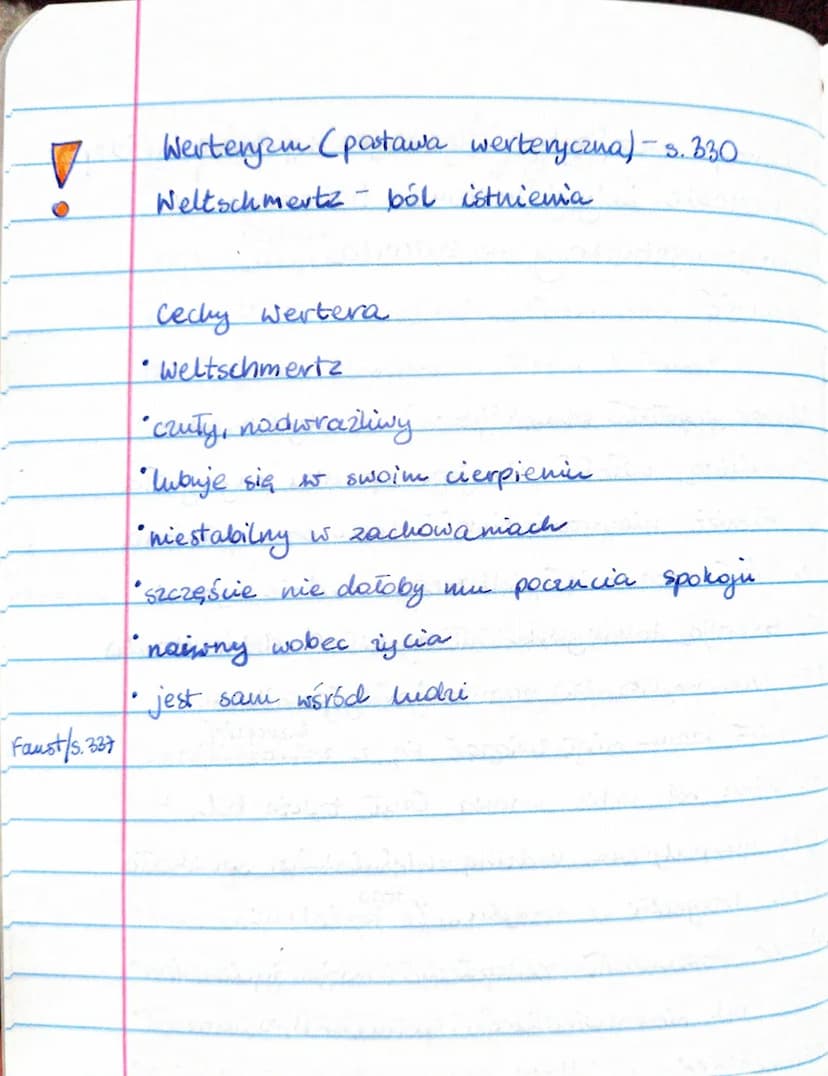 Werteryzm (postawa werteryczna) - s. 330
Weltschmertz - ból istnienia
Cechy Wertera
• Weltschmertz
• czuły, nadwrażliwy
• lubuje się w swoim cierpieniu
• niestabilny w zachowaniach
• szczęście nie dałoby mu poczucia spokoju
• naiwny wobec życia
• jest sam wśród ludzi
Faust/s. 337